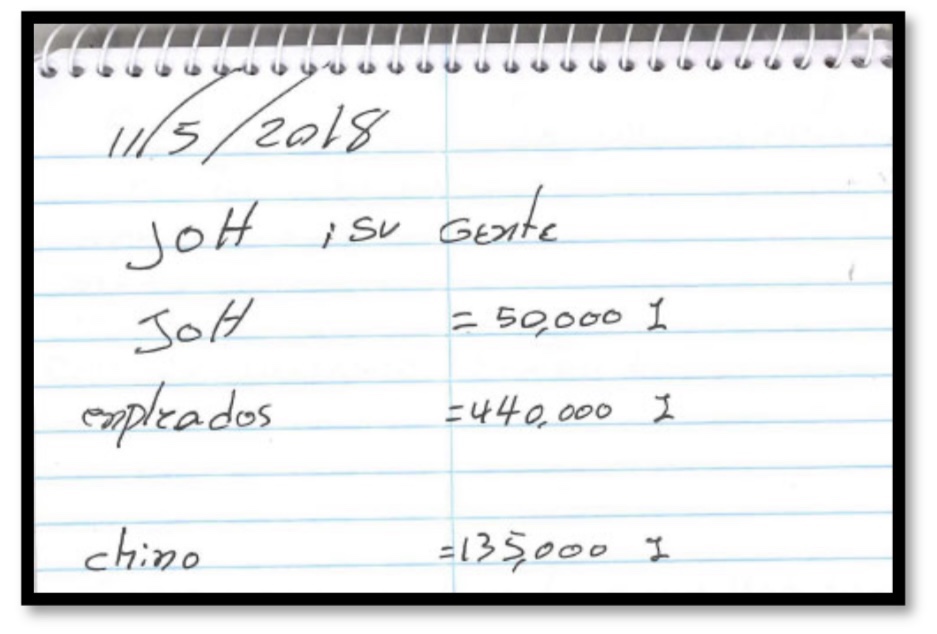 11/5/2018
JOH i SU GENTE
JOH = 50,000 I
empleados = 440,000 I
chino = 135,000 I